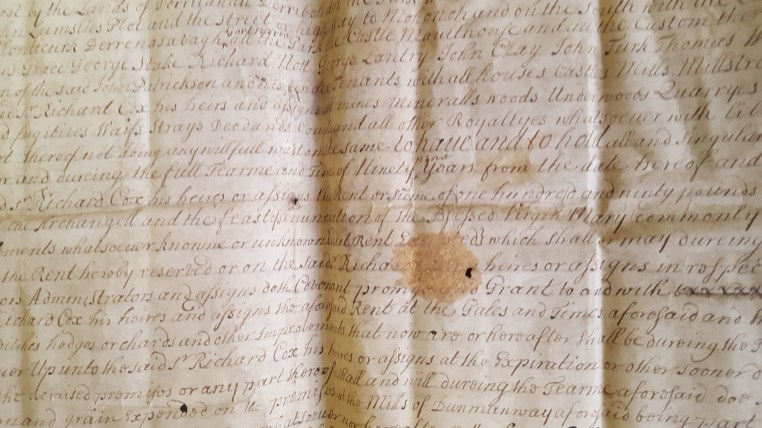 by the Lands of Derrynan Derribon
Plot and the Street or high way to Mohonah and on the South with the
Derrenasabagh the Park the Castle Maulthouse and all the Custom thor
Grace George Stuke Richard Nott Georg Lantry John Clay John Turk Thomas
of the said John Patrickson and his under Tenants with all houses Castles Mills Millstro
Sr Richard Cox his heirs and assigns all mines Mineralls woods Underwoods Quarryes
fugitives Waifs Strays Deodands and all other Royaltyes whatsoever with lib
thereof not doing any willfull wast on the same to have and to hold all and Singular
and dureing the full Tearme and time of Ninety nine Years from the date hereof and
Sr Richard Cox his heires or assigns the Rent or Sume of one hundred and ninty pounds
the Archangell and the feast of anuncation of the Blessed Virgin Mary commonly
whatsoever knowne or unknown Quit Rent which shall or may dureing
the Rent hereby reserved or on the said Sr Richa heires or assigns in respec
Administrators and assigns doth Covenant prom Grant to and with
Richard Cox his heires and assigns the aforesaid Rent at the Gales and Times aforesaid and
hedges orchards and other Improvements that now are or hereafter shall be dureing the
up unto the said Sr Richard Cox his heires or assigns at the Expiration or other sooner
the demised premises or any part thereof shall and will dureing the Tearme aforesaid doe
and grain Expended on the premises at the Mills of Dunmanway aforesaid being part
whatsoever